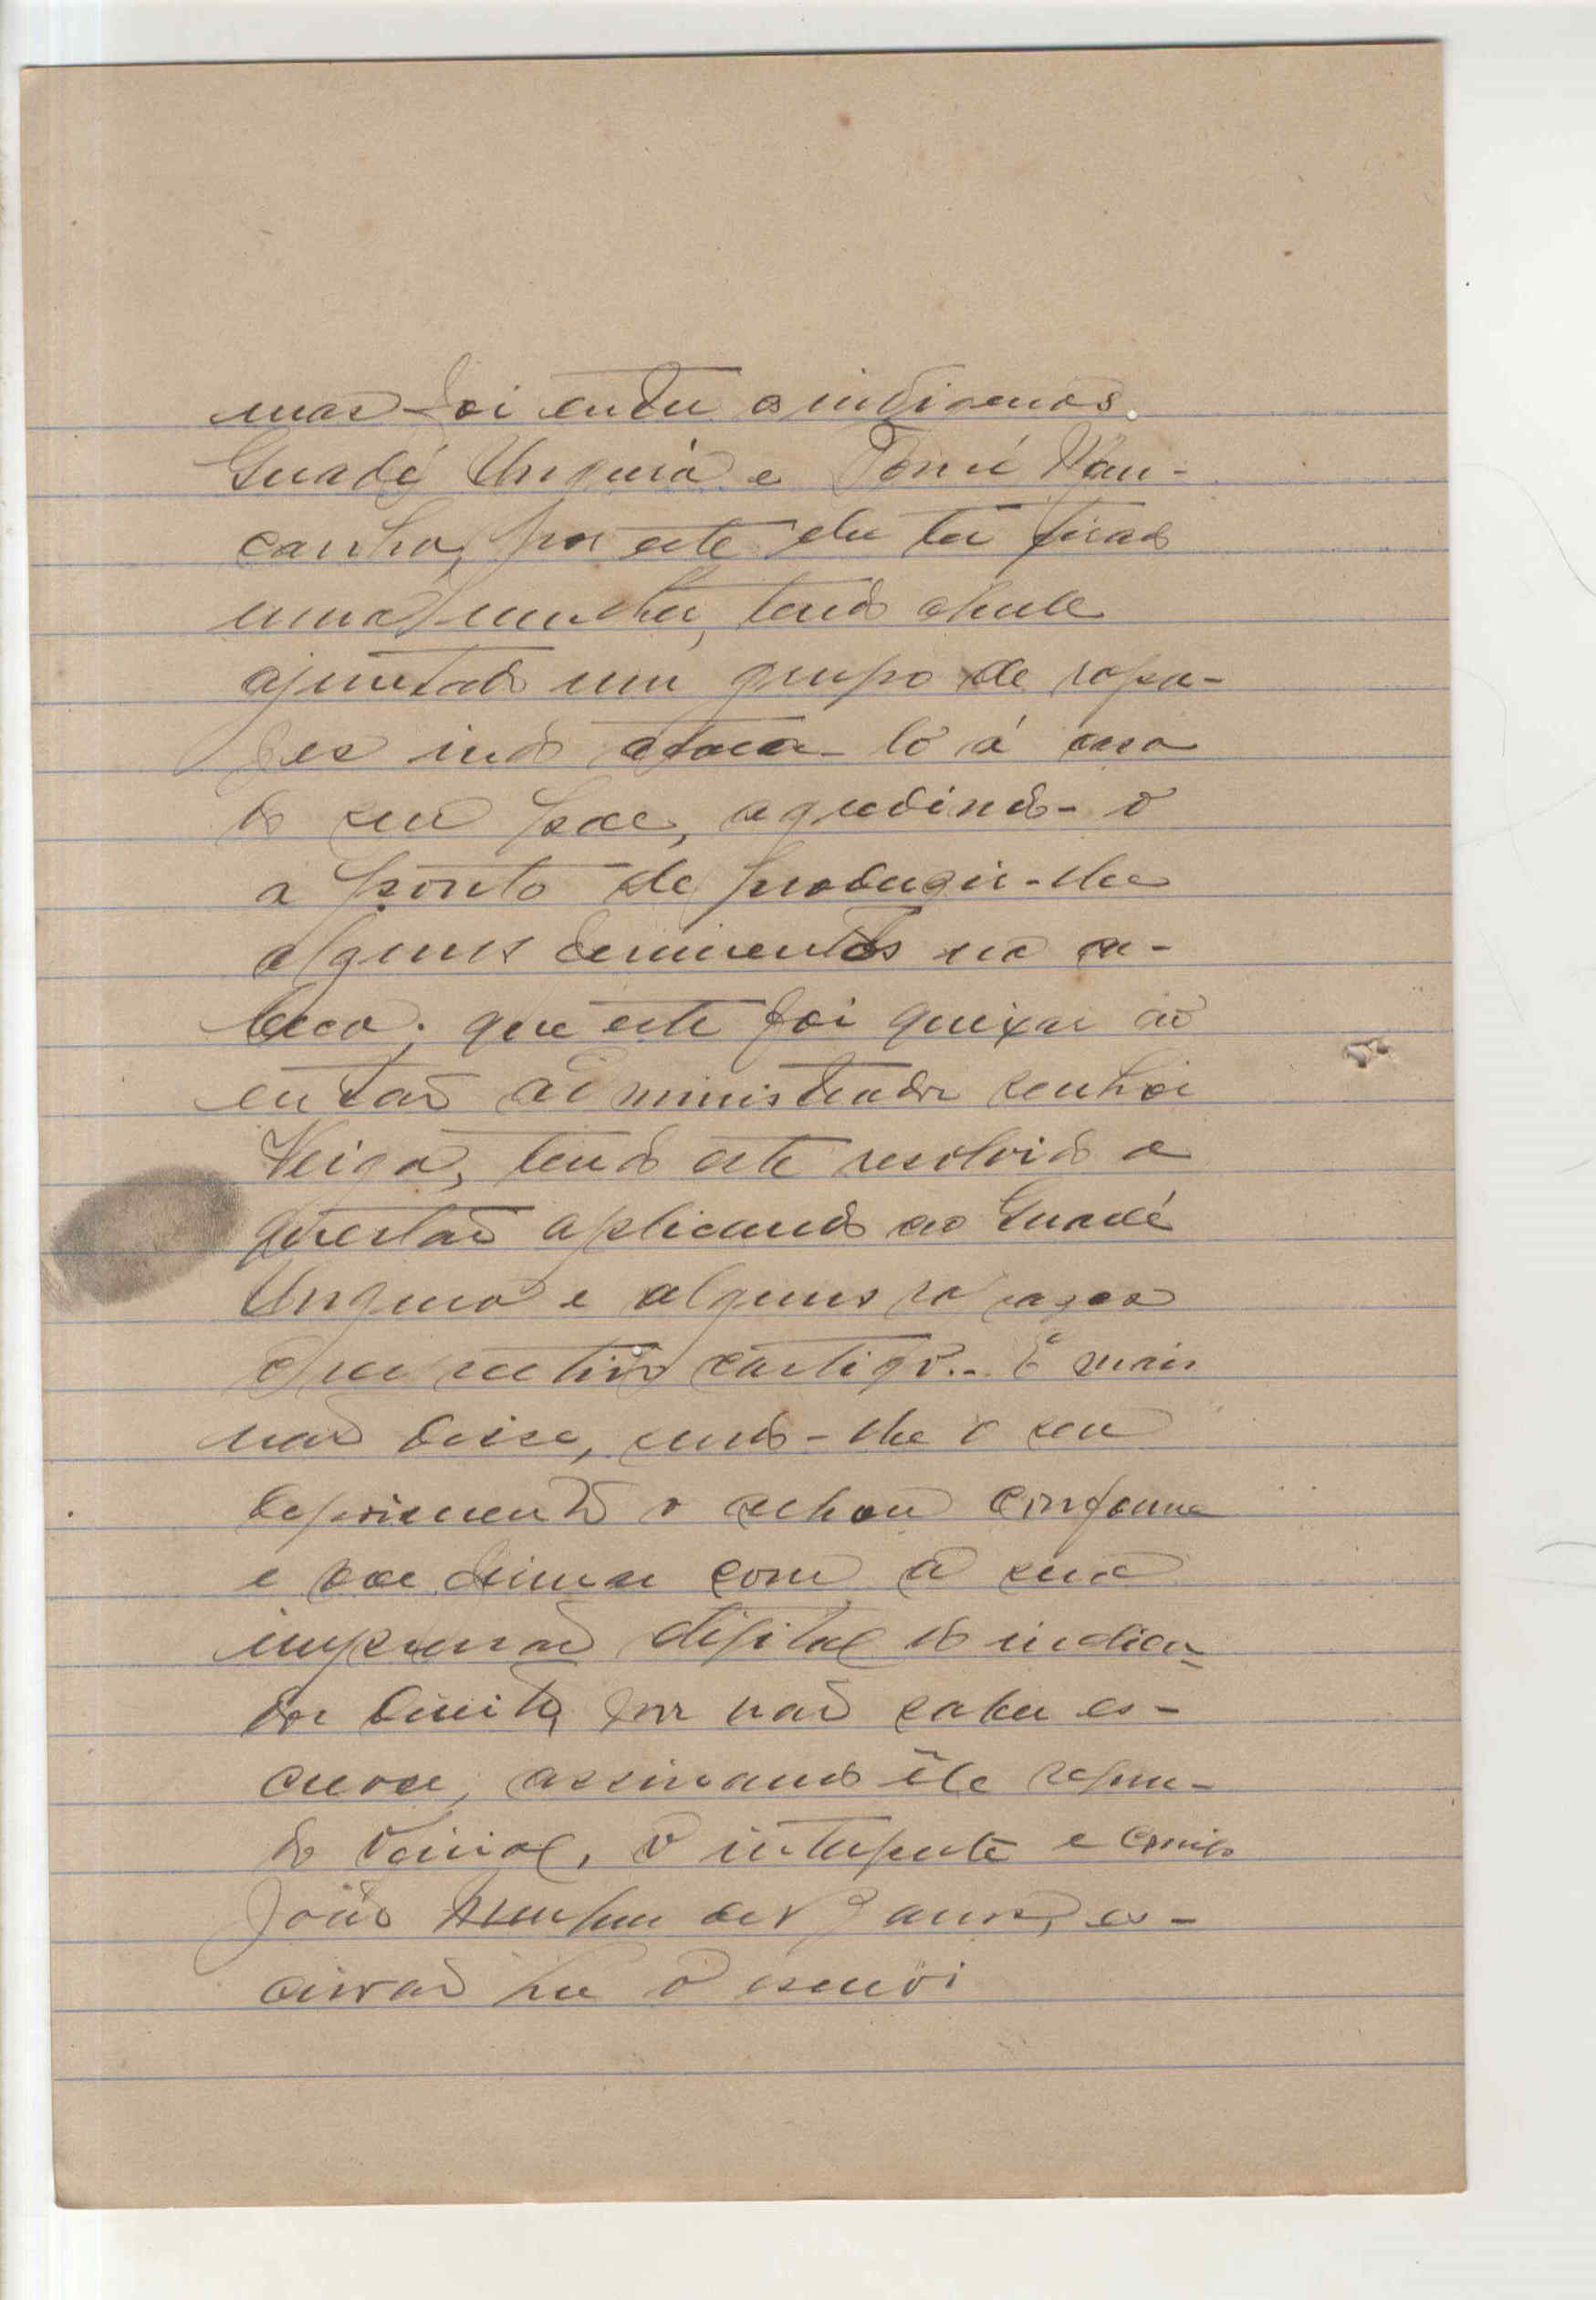 mas foi entre os indigenas
Guadé Unquiá e Tomé Man-
canha, por este lhe ter tirado
uma mulher, tendo aquele
ajuntado um grupo de rapa-
zes indo ataca-lo á casa
do seu pae, agredindo-o
a ponto de produzir-lhe
alguns ferimentos na ca-
beça; que este foi queixar ao
então administrador senhor
Veiga, tendo este resolvido a
questão aplicando ao Guadé
Unquiá e alguns rapazes
castigo... E mais
não disse, lendo-lhe o seu
depoimento o achou conforme
e vae firmar com a sua
impressão digital do indica-
dor direito, por não saber es-
crever, assinando êle repre-
do oficial, o interprete e comigo
João de Barros, es-
crivão que o escrevi